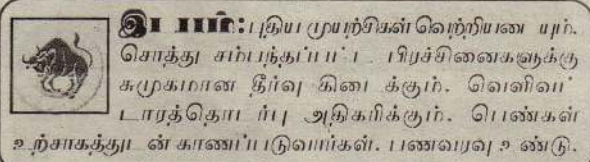 இடபம்: புதிய முயற்சிகள் வெற்றியடையும்.
சொத்து சம்பந்தப்பட்ட பிரச்சினைகளுக்கு
சுமுகமான தீர்வு கிடைக்கும். வெளிவட்
டாரத்தொடர்பு அதிகரிக்கும். பெண்கள்
உற்சாகத்துடன் காணப்படுவார்கள். பணவரவு உண்டு.